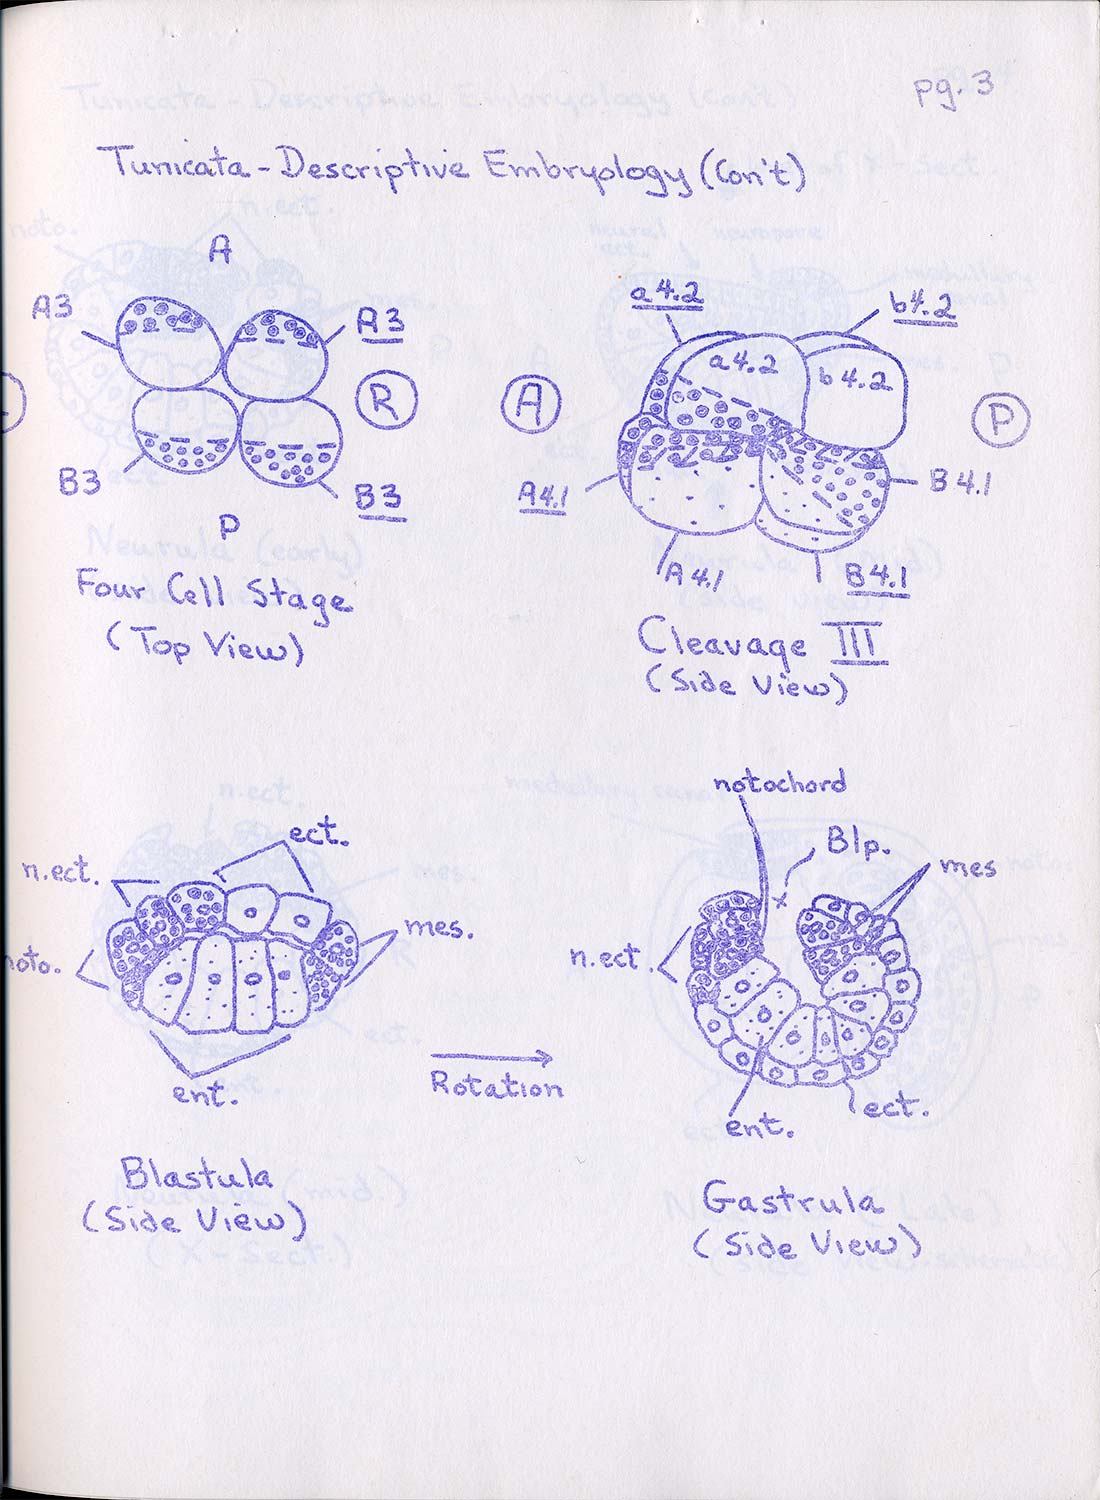 pg. 3
Tunicata - Descriptive Embryology (Con't)
A
A3
A3
R
B3
B3
P
Four Cell Stage
(Top View)
a4.2
b4.2
a4.2
b4.2
A
P
A4.1
B4.1
A4.1
B4.1
Cleavage III
(Side View)
ect.
n.ect.
noto.
mes.
ent.
Blastula
(Side View)
Rotation
notochord
Blp.
x
mes
n.ect.
ent.
ect.
Gastrula
(Side View)